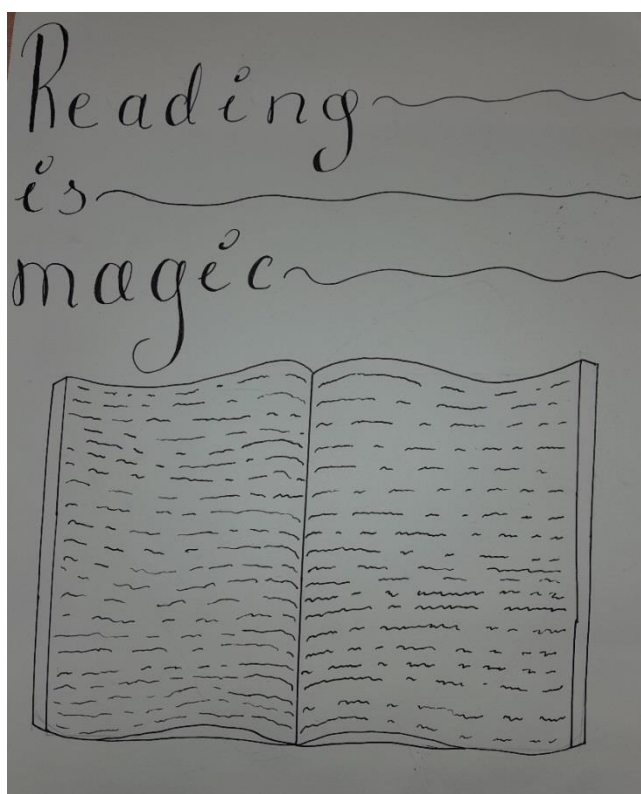 Reading
is
magic